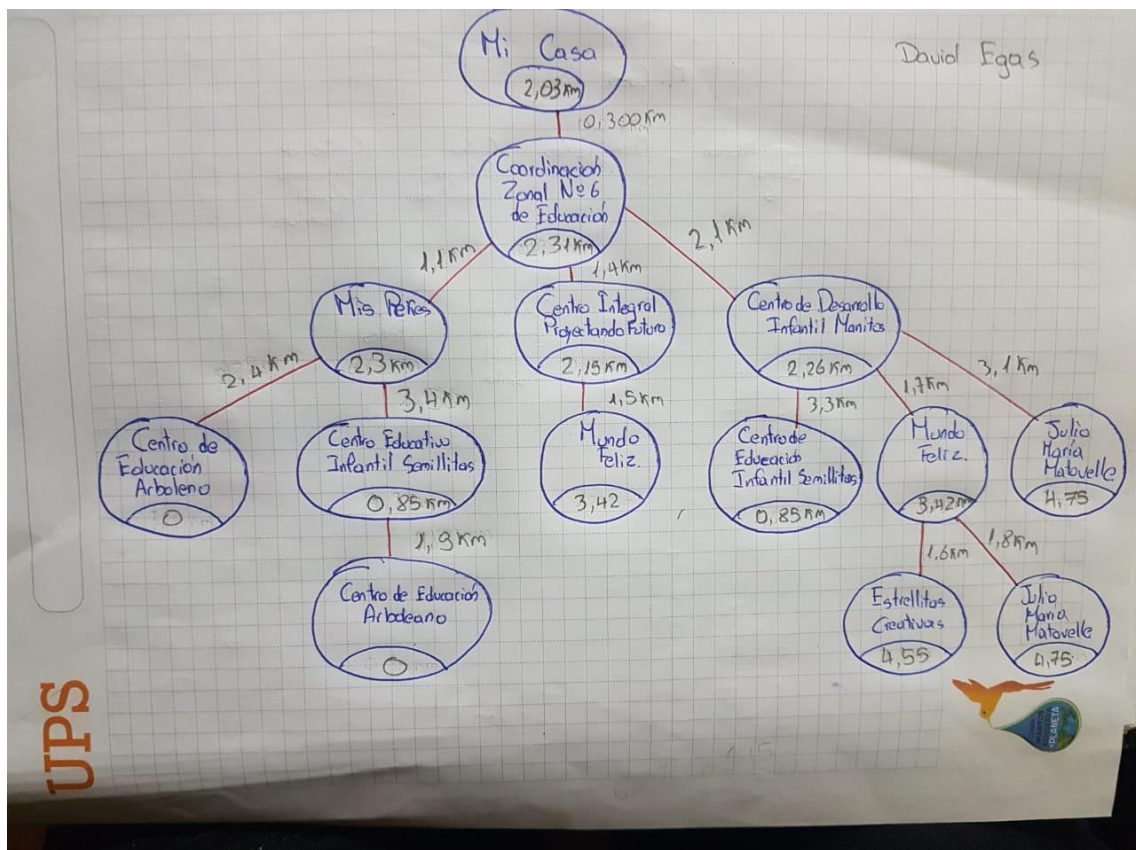 Mi Casa
2,03 Km
David Egas
0,300 Km
Coordinación
Zonal Nº 6
de Educación
2,31 Km
1,1 Km
1,4 Km
2,1 Km
Mis Peñes
2,3 Km
Centro Integral
Proyectando Futuro
2,15 Km
Centro de Desarrollo
Infantil Manitos
2,26 Km
2,4 Km
3,4 Km
1,5 Km
3,3 Km
1,7 Km
3,1 Km
Centro de
Educación
Arboleno
0
Centro Educativo
Infantil Semillitas
0,85 Km
Mundo
Feliz.
3,42
Centro de
Educación
Infantil Semillitas
0,85 Km
Mundo
Feliz.
3,42 Km
Julio
María
Matovelle
4,75
1,9 Km
1,6 Km
1,8 Km
Centro de Educación
Arboleano
0
Estrellitas
Creativas
4,55
Julio
María
Matovelle
4,75
UPS
PLANETA